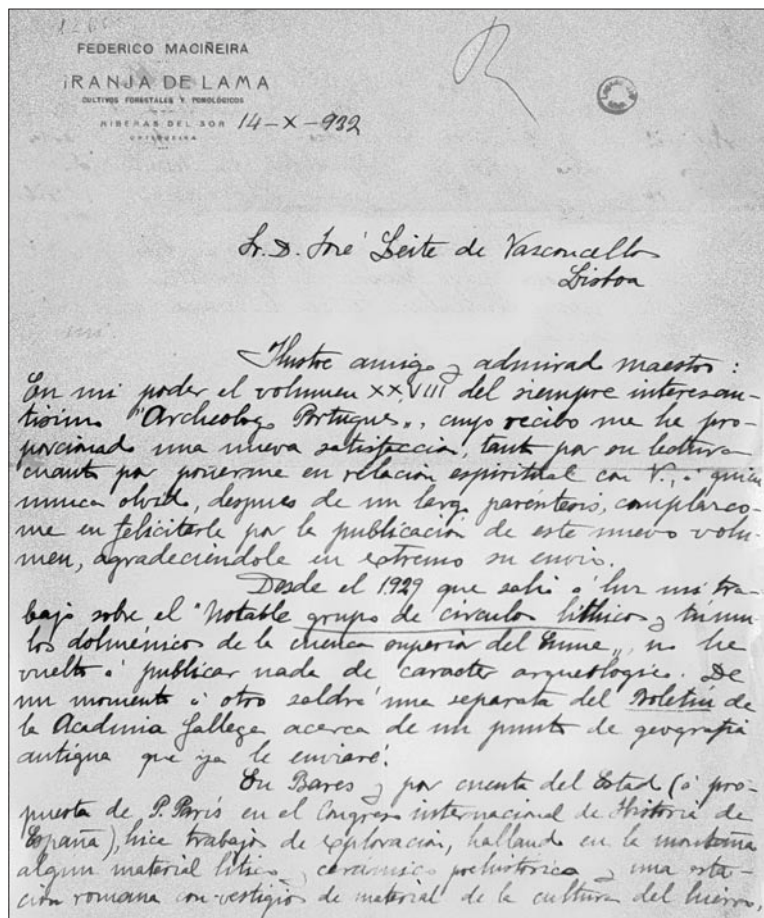 1266
FEDERICO MACIÑEIRA
GRANJA DE LAMA
CULTIVOS FORESTALES Y POMOLÓGICOS
RIBERAS DEL SOR
ORTIGUEIRA
14-X-932
R
Sr. D. José Leite de Vasconcellos
Lisboa
Ilustre amigo y admirado maestro:
En mi poder el volumen XXVIII del siempre interesan-
tísimo "Archeologo Portugues", cuyo recibo me he pro-
porcionado una nueva satisfacción, tanto por su lectura
cuanto por ponerme en relación espiritual con V., á quien
nunca olvido, despues de un largo paréntesis, complazco-
me en felicitarle por la publicación de este nuevo volu-
men, agradeciéndole en extremo su envio.
Desde el 1929 que salió á luz mi tra-
bajo sobre el "Notable grupo de circulos líthicos y túmu-
los dolménicos de la cuenca superior del Eume", no he
vuelto á publicar nada de caracter arqueológico. De
un momento á otro saldrá una separata del Boletín de
la Academia Gallega acerca de un punto de geografia
antigua que ya le enviaré.
En Bares y por cuenta del Estado (á pro-
puesta de P. Paris en el Congreso internacional de Historia de
España), hice trabajos de exploración, hallando en la montaña
algun material lítico, cerámica prehistorica y una esta-
ción romana con vestigios de material de la cultura del hierro,